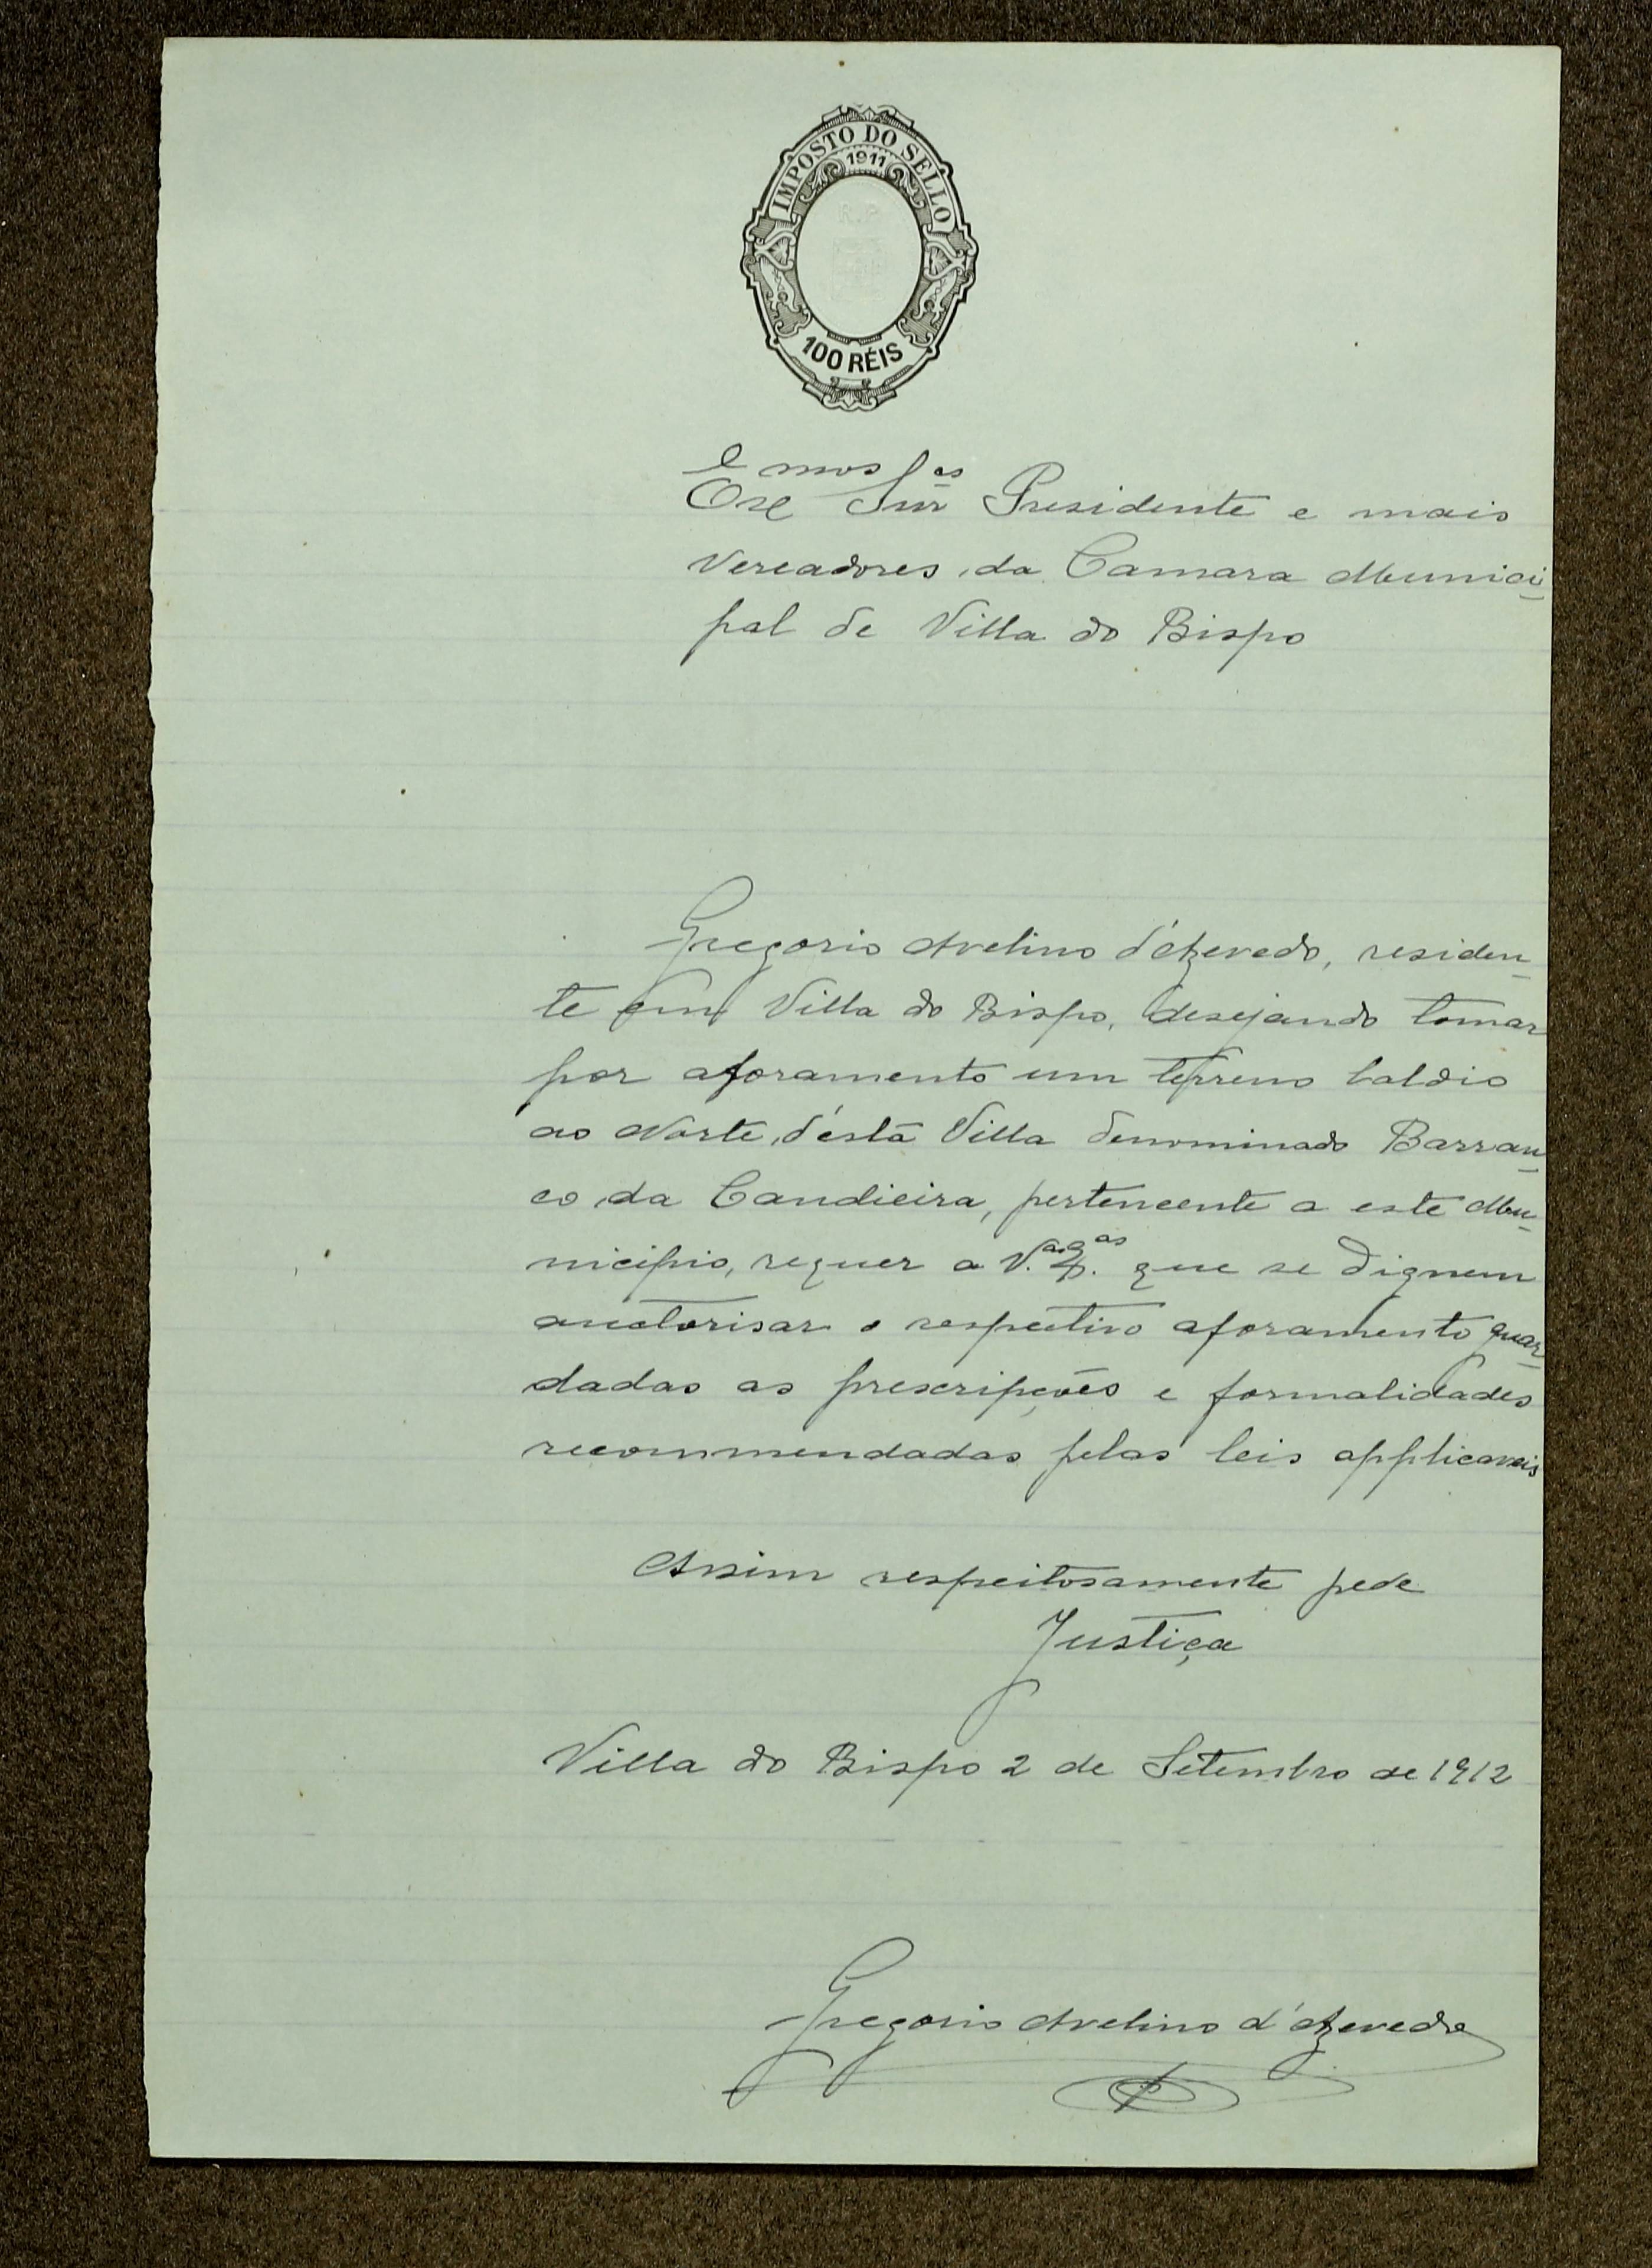 IMPOSTO DO SELLO
1911
R.P
100 RÉIS
Exmos Snres Presidente e mais
Vereadores da Camara Munici-
pal de Villa do Bispo
Gregorio Avelino d'Azevedo, residen-
te em Villa do Bispo, desejando tomar
por aforamento um terreno baldio
ao Norte, d'esta Villa denominado Barran-
co da Candieira, pertencente a este Mu-
nicipio, requer a V. que se dignem
auctorisar o respectivo aforamento guar-
dadas as prescripções e formalidades
recommendadas pelas leis applicaveis
Assim respeitosamente pede
Justiça
Villa do Bispo 2 de Setembro de 1912
Gregorio Avelino d'Azevedo